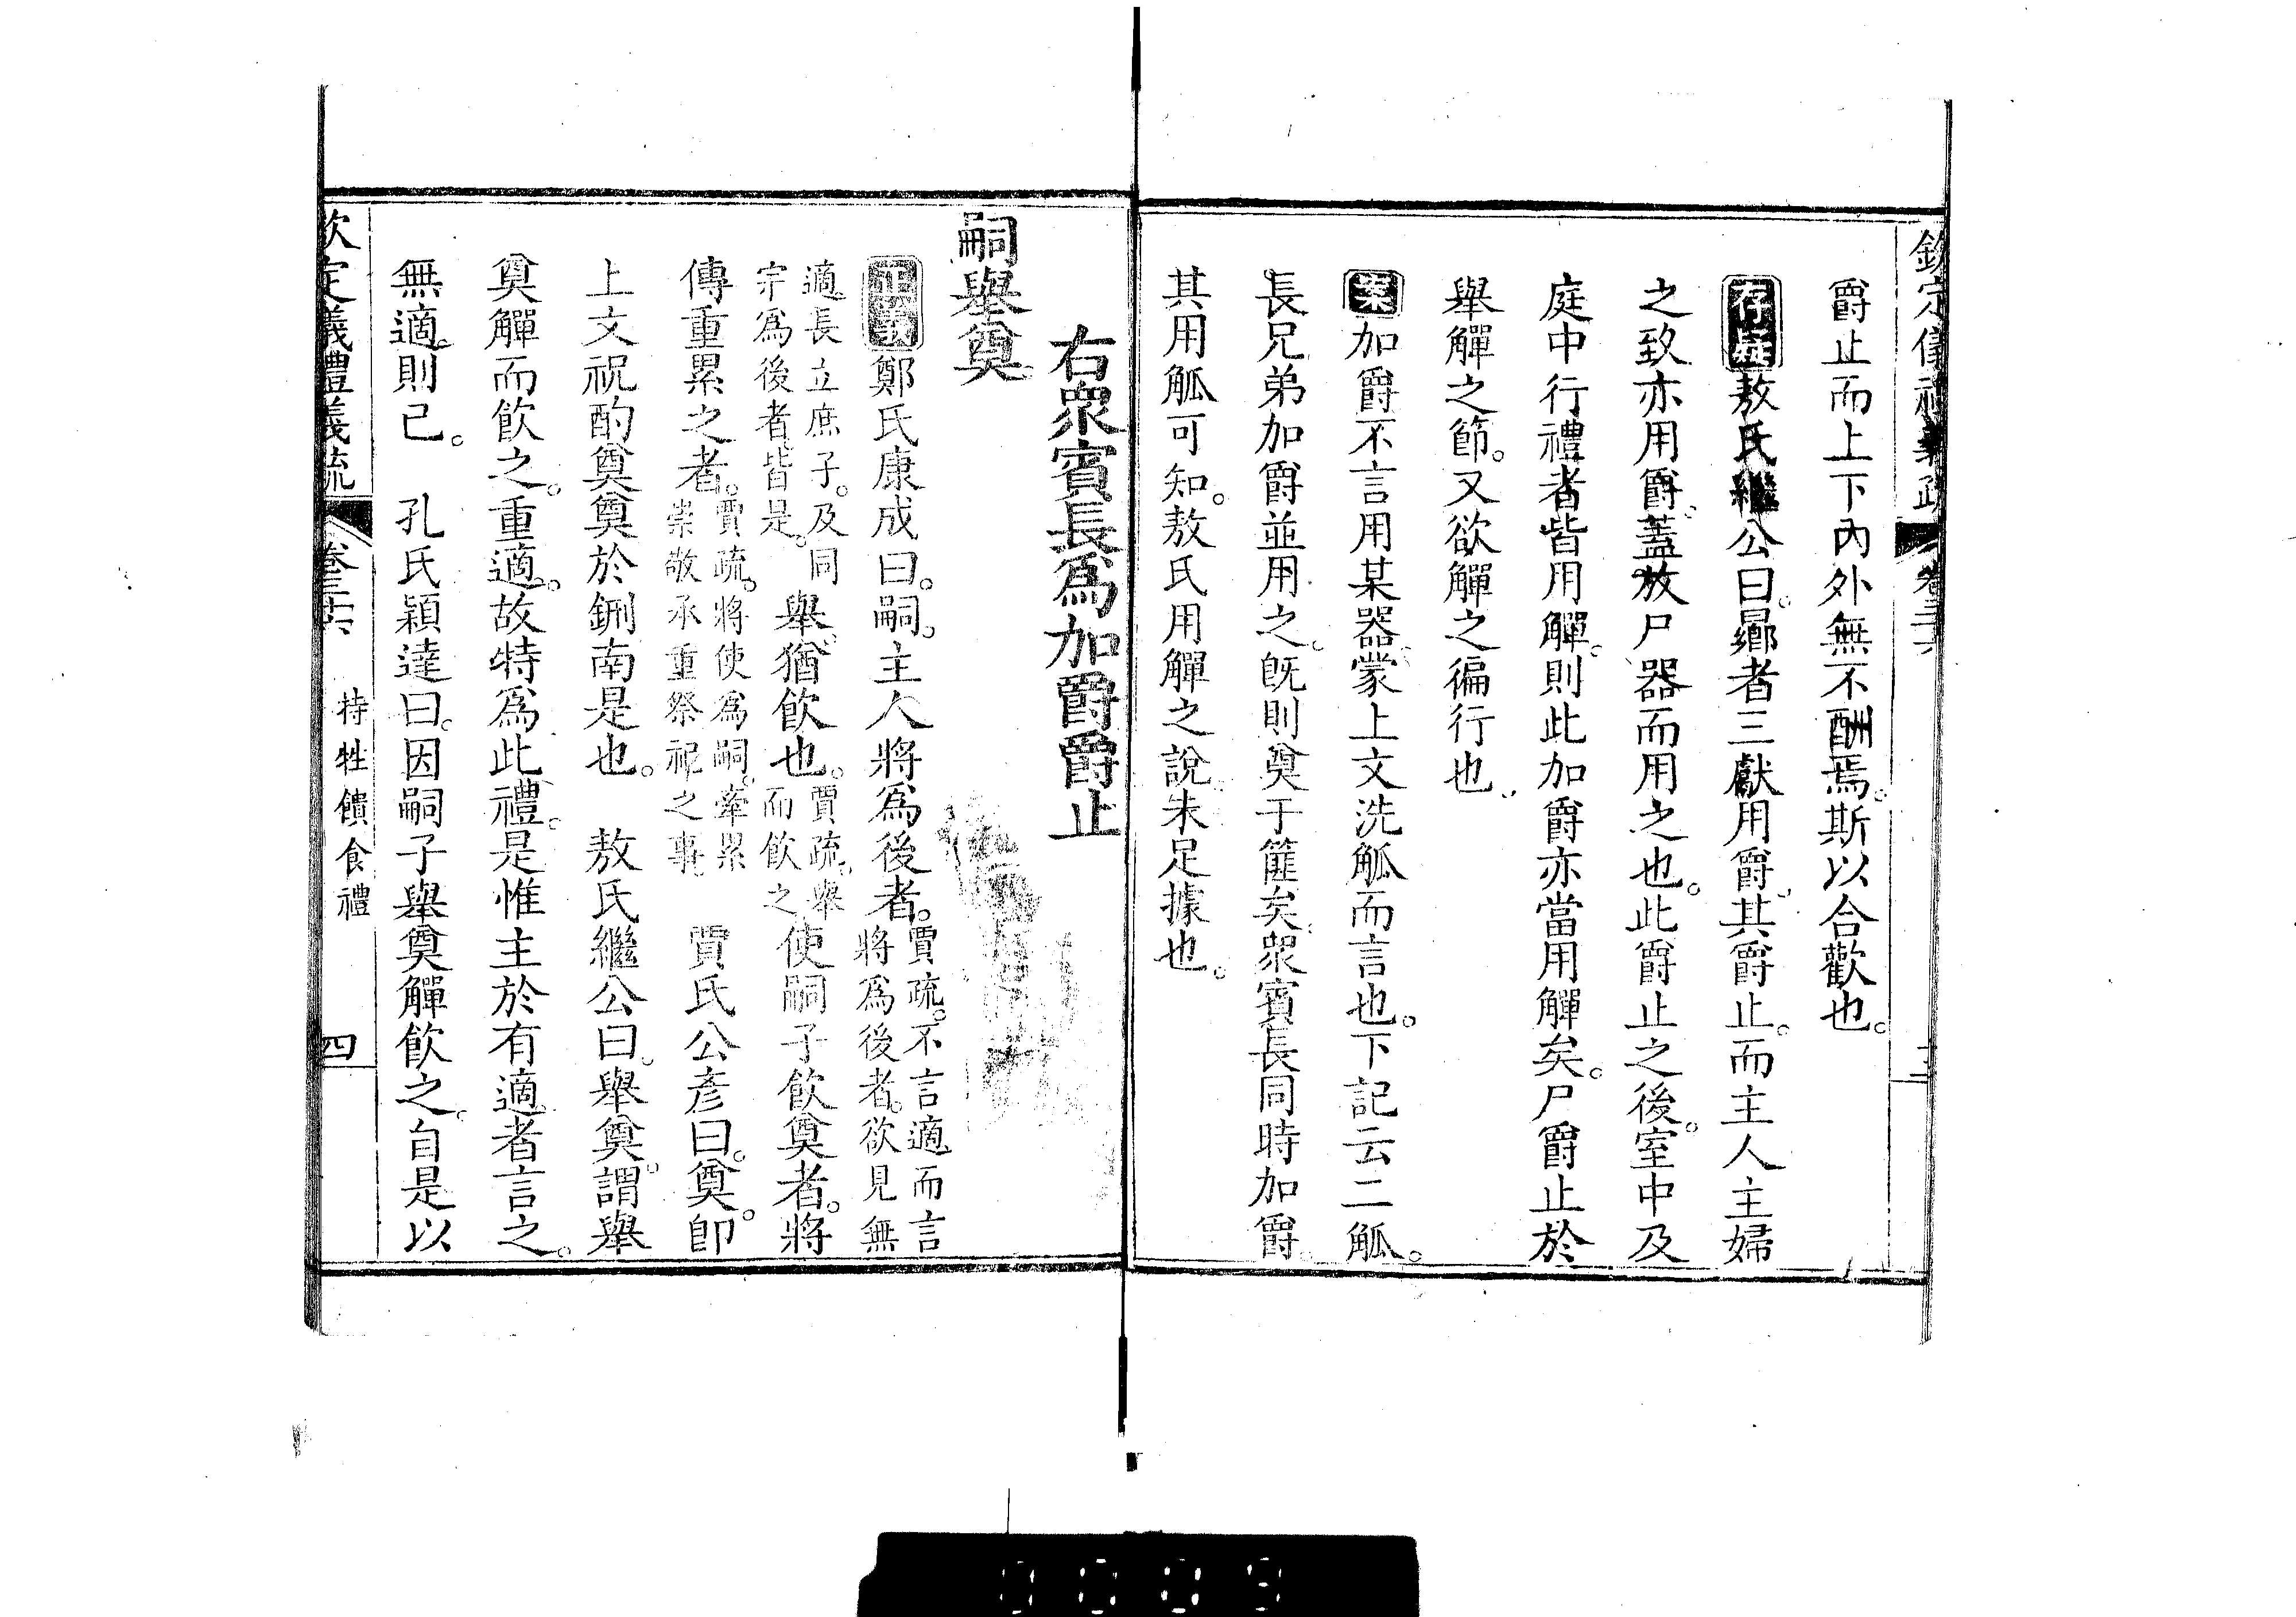 欽定儀禮義疏 卷三十六
爵止而上下內外無不酬焉。斯以合歡也。
存疑敖氏繼公曰。鄉者三獻用爵。其爵止。而主人主婦
之致亦用爵。蓋放尸器而用之也。此爵止之後。室中及
庭中行禮者皆用觶。則此加爵亦當用觶矣。尸爵止於
舉觶之節。又欲觶之徧行也。
案加爵不言用某器。蒙上文洗觚而言也。下記云二觚。
長兄弟加爵並用之。旣則奠于篚矣。衆賓長同時加爵。
其用觚可知。敖氏用觶之說。未足據也。
右衆賓長爲加爵爵止
嗣舉奠
正義鄭氏康成曰。嗣。主人將爲後者。賈疏。不言適而言將爲後者。欲見無
適長立庶子。及同宗爲後者。皆是。舉。猶飮也。賈疏。舉而飮之使嗣子飮奠者。將
傳重累之者。賈疏。將使爲嗣。牽累崇敬承重祭祀之事 賈氏公彥曰。奠。卽
上文祝酌奠奠於鉶南是也。 敖氏繼公曰。舉奠。謂舉
奠觶而飮之。重適。故特爲此禮。是惟主於有適者言之。
無適。則已。 孔氏穎達曰。因嗣子舉奠觶飮之。自是以
欽定儀禮義疏 卷三十六 特牲饋食禮 四